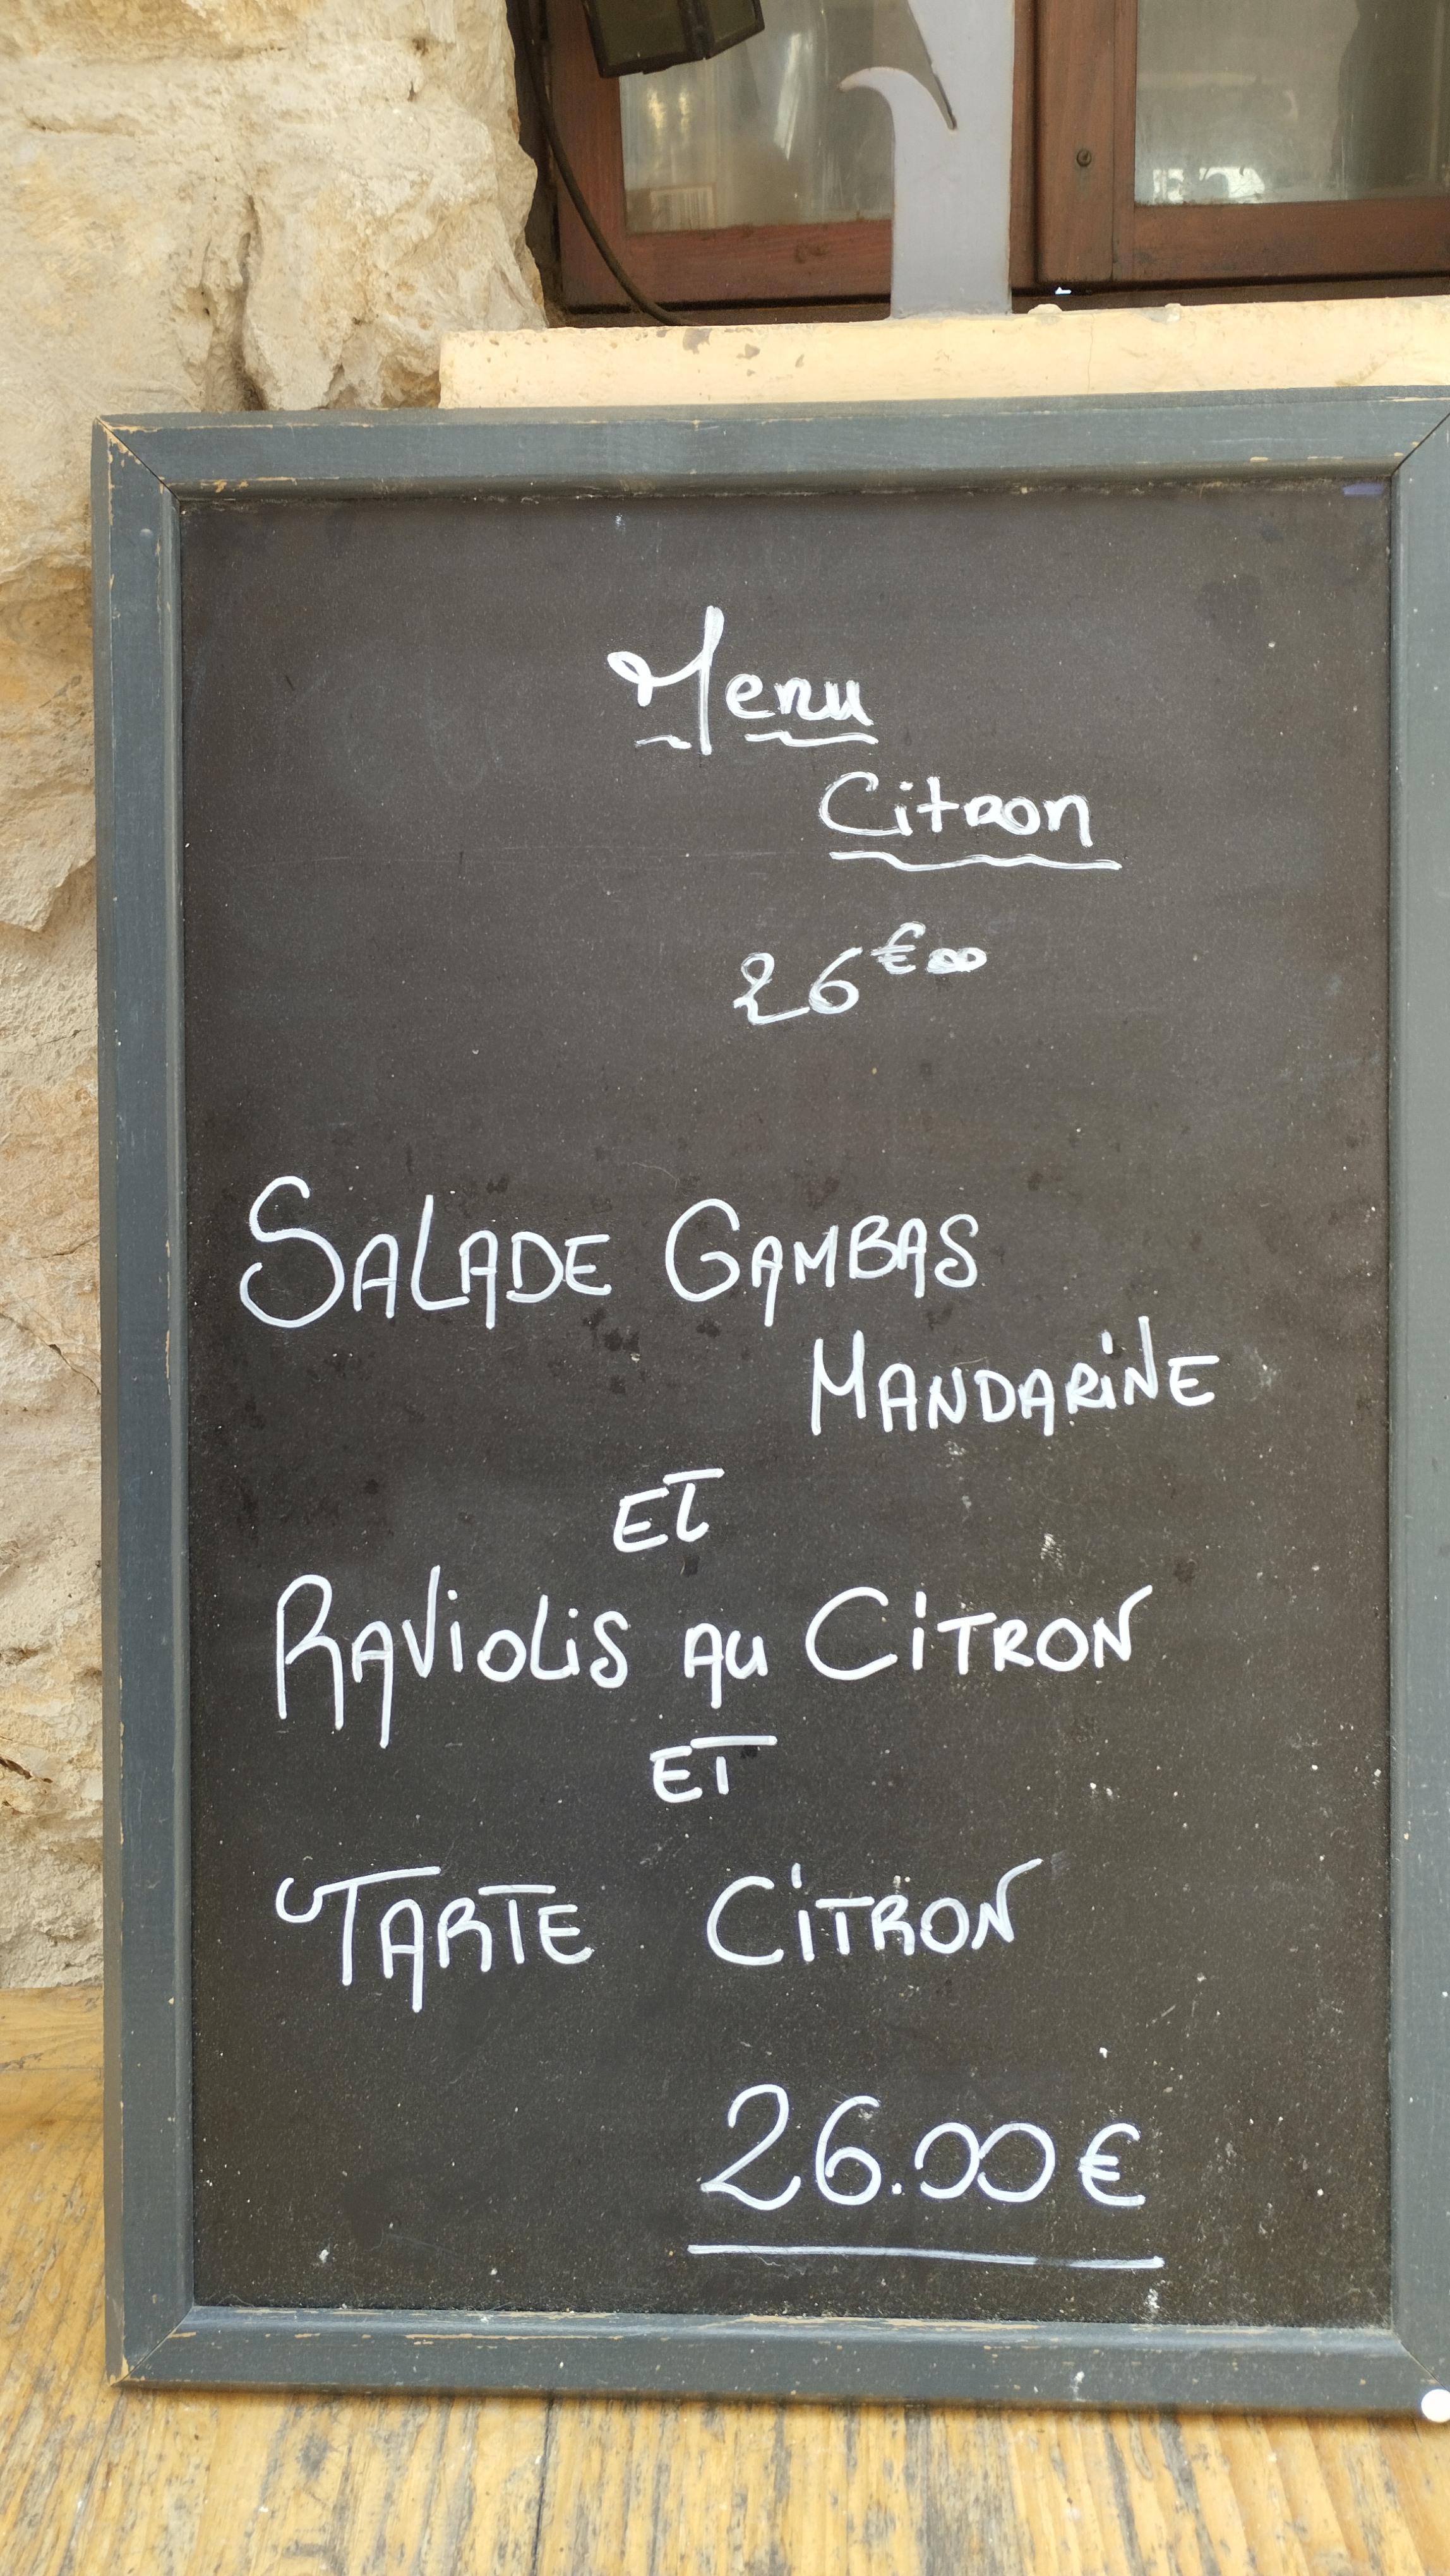 Menu
Citron
26€00
SALADE GAMBAS
MANDARiNE
ET
RAViOLiS AU CiTRON
ET
TARTE CiTRON
26.00€